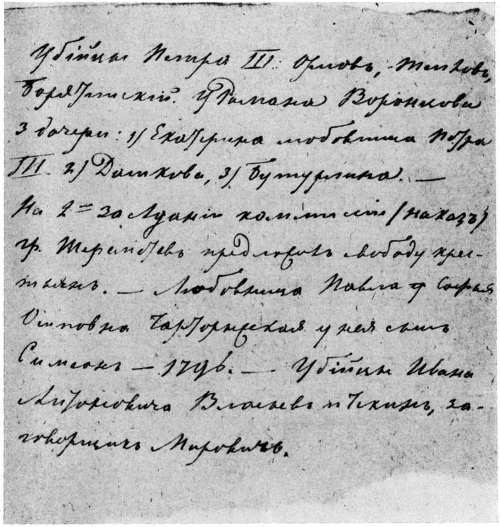 Убійцы Петра III: Орловъ, Тепловъ,
Барятинскій. У Романа Воронцова
3 дочери: 1) Екатерина любовница Петра
III. 2) Дашкова, 3) Бутурлина. —
На 2ᵐ засѣданіи коммиссіи (наказъ)
гр. Шереметевъ предложилъ свободу крес-
тьянъ. — Любовница Павла ф Софья
Осиповна Чарторижская у нея сынъ
Симеонъ — 1796. — Убійцы Ивана
Антоновича Власьевъ и Чекинъ, за-
говорщикъ Мировичъ.